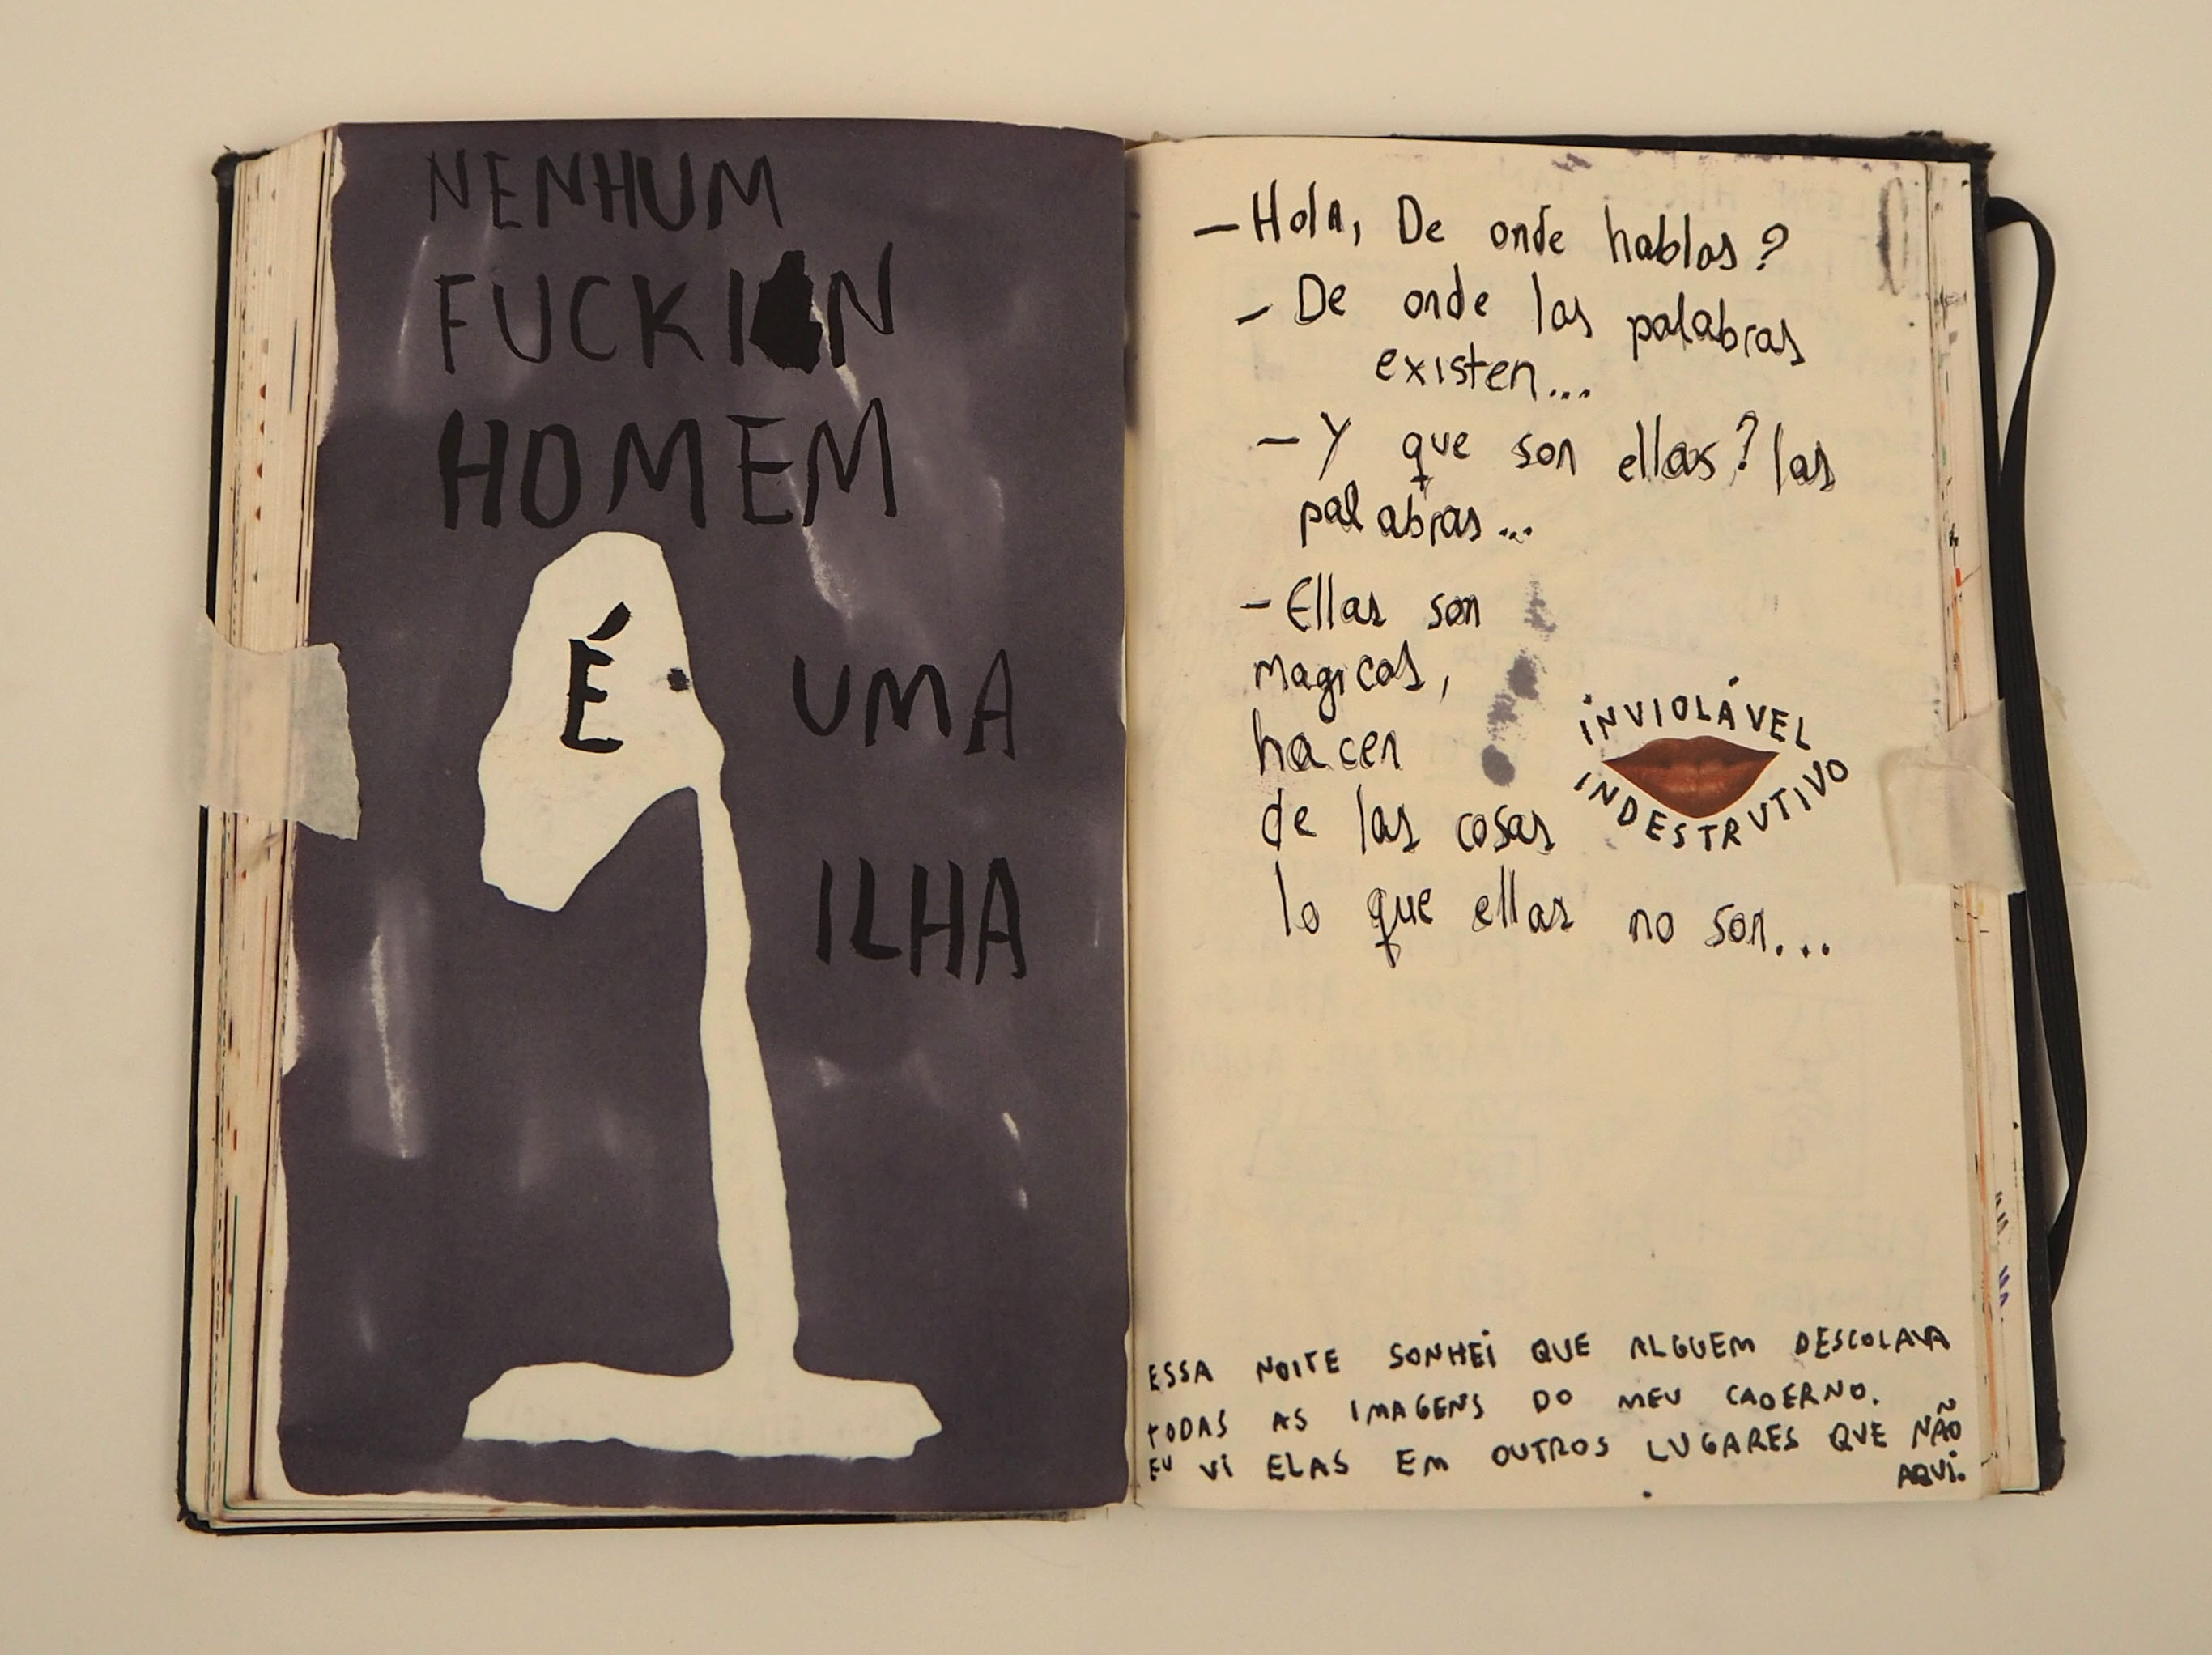 NENHUM
FUCKIN
HOMEM
É UMA
ILHA
– Hola, De onde hablas?
– De onde las palabras
existen...
– Y que son ellas? las
palabras...
– Ellas son
magicas,
hacen
de las cosas
lo que ellas no son...
INVIOLÁVEL
INDESTRUTIVO
ESSA NOITE SONHEI QUE ALGUEM DESCOLAVA
TODAS AS IMAGENS DO MEU CADERNO.
EU VI ELAS EM OUTROS LUGARES QUE NÃO
AQUI.